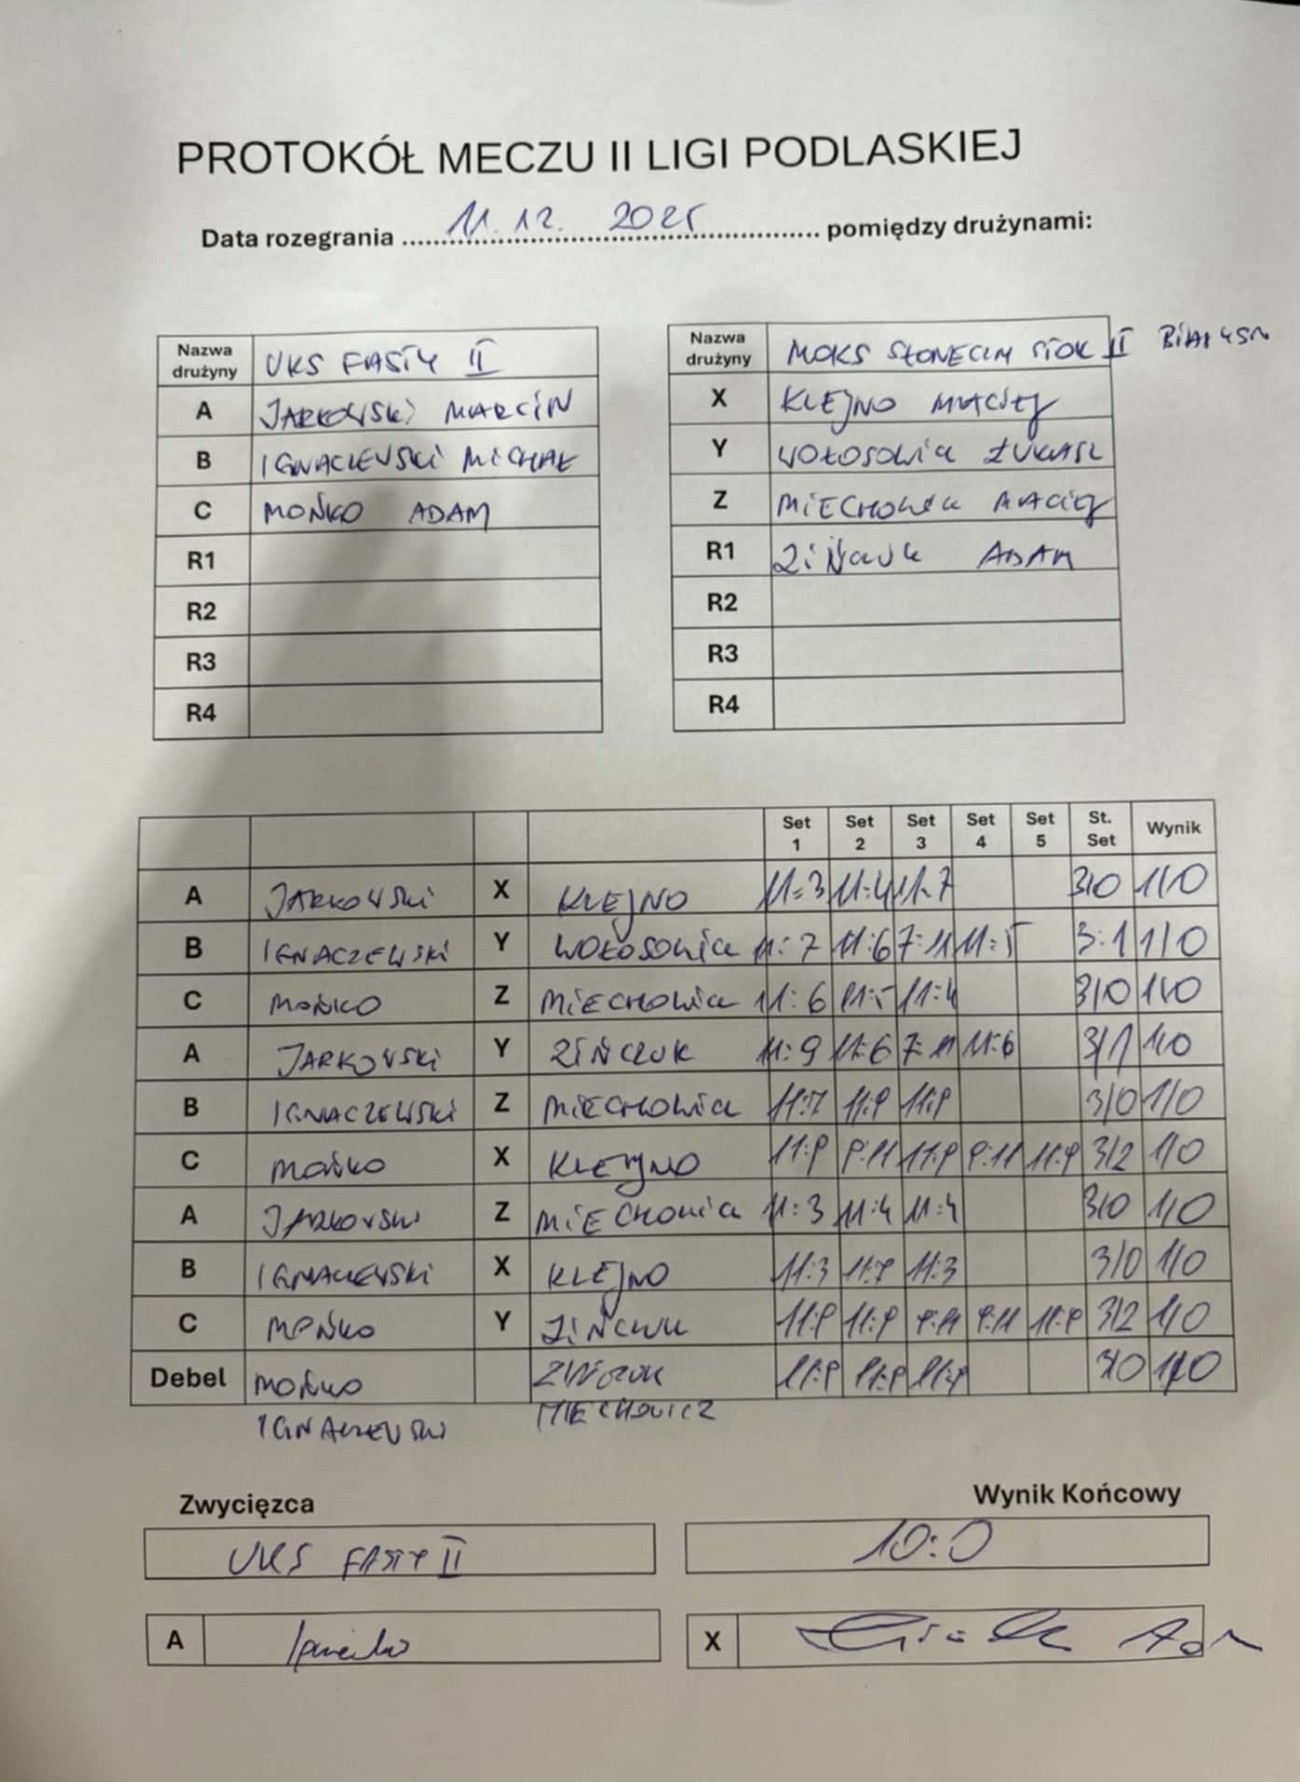 PROTOKÓŁ MECZU II LIGI PODLASKIEJ
Data rozegrania 11.12. 2025 pomiędzy drużynami:
Nazwa drużyny UKS FASTY II
A JARKOWSKI MARCIN
B IGNACZEWSKI MICHAŁ
C MOŃKO ADAM
R1
R2
R3
R4
Nazwa drużyny MOKS SŁONECZNY STOK II BIAŁYSTOK
X KLEJNO MACIEJ
Y WOŁOSOWICZ ŁUKASZ
Z MIECHOWICZ MACIEJ
R1 ZIŃCZUK ADAM
R2
R3
R4
Set 1 Set 2 Set 3 Set 4 Set 5 St. Set Wynik
A JARKOWSKI X KLEJNO 11:3 11:4 11:7 3/0 1/0
B IGNACZEWSKI Y WOŁOSOWICZ 11:7 11:6 7:11 11:5 3:1 1/0
C MOŃKO Z MIECHOWICZ 11:6 11:5 11:4 3/0 1/0
A JARKOWSKI Y ZIŃCZUK 11:9 11:6 7:11 11:6 3/1 1/0
B IGNACZEWSKI Z MIECHOWICZ 11:7 3/0 1/0
C MOŃKO X KLEJNO 3/2 1/0
A JARKOWSKI Z MIECHOWICZ 11:3 11:4 11:4 3/0 1/0
B IGNACZEWSKI X KLEJNO 11:3 11:3 3/0 1/0
C MOŃKO Y ZIŃCZUK 3/2 1/0
Debel MOŃKO ZIŃCZUK 3/0 1/0
IGNACZEWSKI MIECHOWICZ
Zwycięzca Wynik Końcowy
UKS FASTY II 10:0
A
X